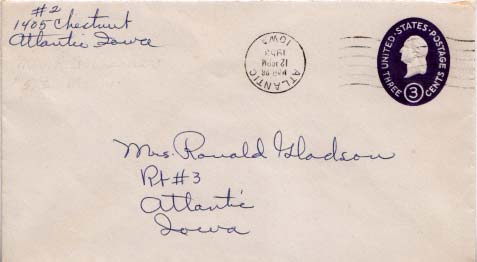 #2
1405 Chestnut
Atlantic Iowa
ATLANTIC
MAR 28
12 30 PM
1953
IOWA
UNITED · STATES · POSTAGE
THREE 3 CENTS
Mrs. Ronald Gladson
Rt #3
Atlantic
Iowa